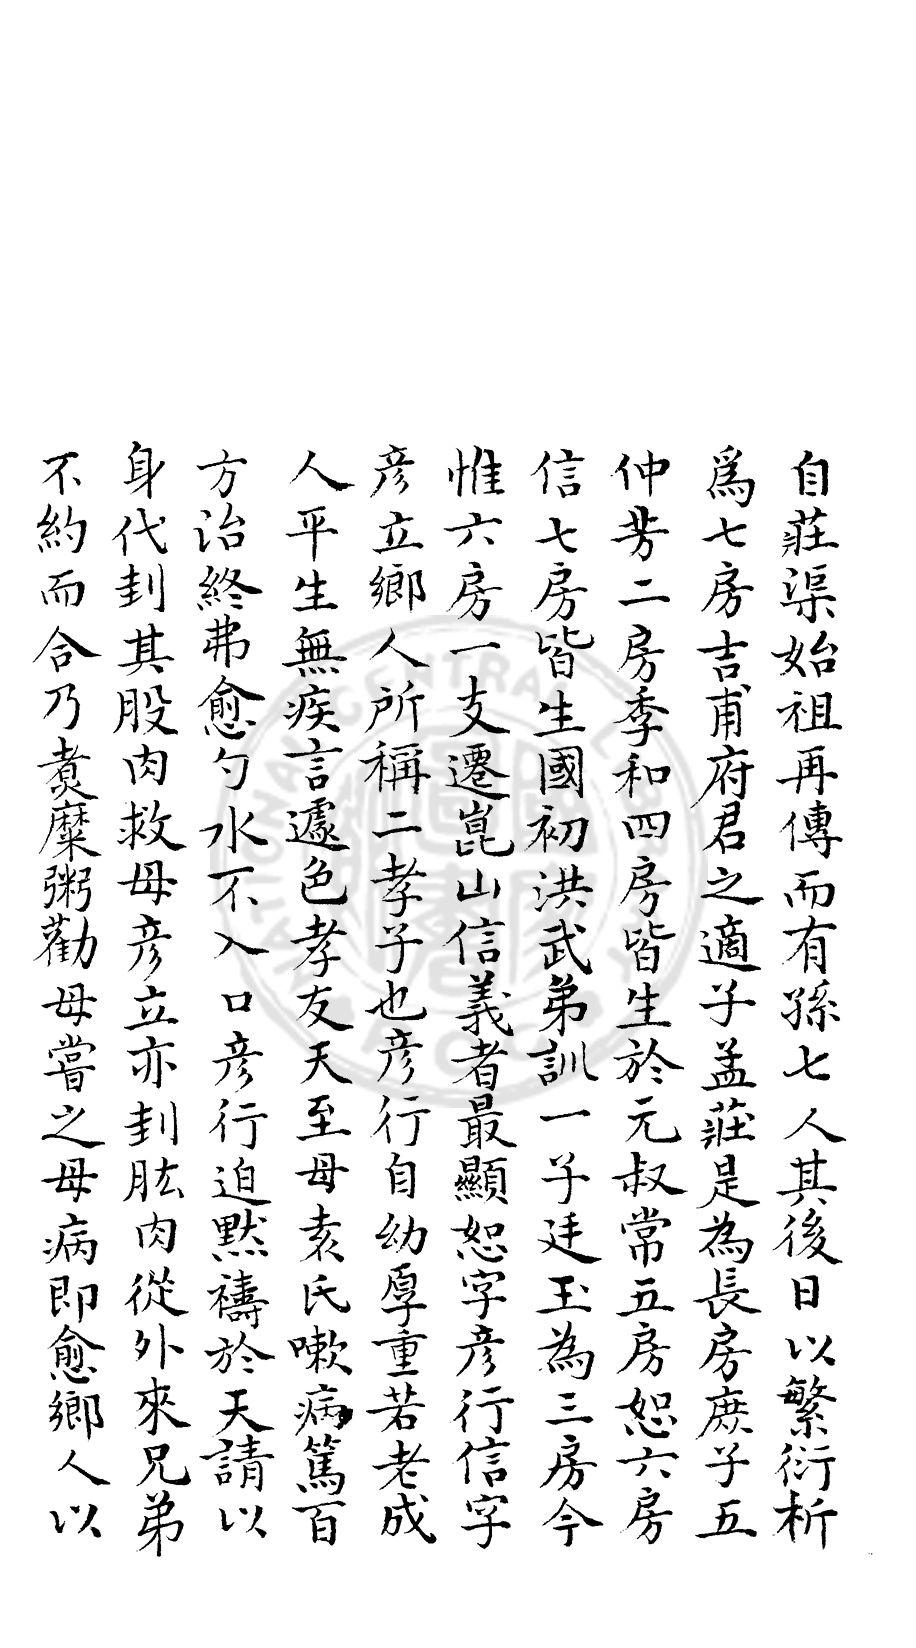 自莊渠始祖再傳而有孫七人其後日以繁衍析
爲七房吉甫府君之適子孟莊是為長房庶子五
仲芳二房季和四房皆生於元叔常五房恕六房
信七房皆生國初洪武弟訓一子廷玉為三房今
惟六房一支遷崑山信義者最顯恕字彥行信字
彥立鄉人所稱二孝子也彥行自幼厚重若老成
人平生無疾言遽色孝友天至母袁氏嗽病篤百
方治終弗愈勺水不入口彥行迫默禱於天請以
身代刲其股肉救母彥立亦刲肱肉從外來兄弟
不約而合乃煑糜粥勸母嘗之母病即愈鄉人以
NATIONAL CENTRAL LIBRARY